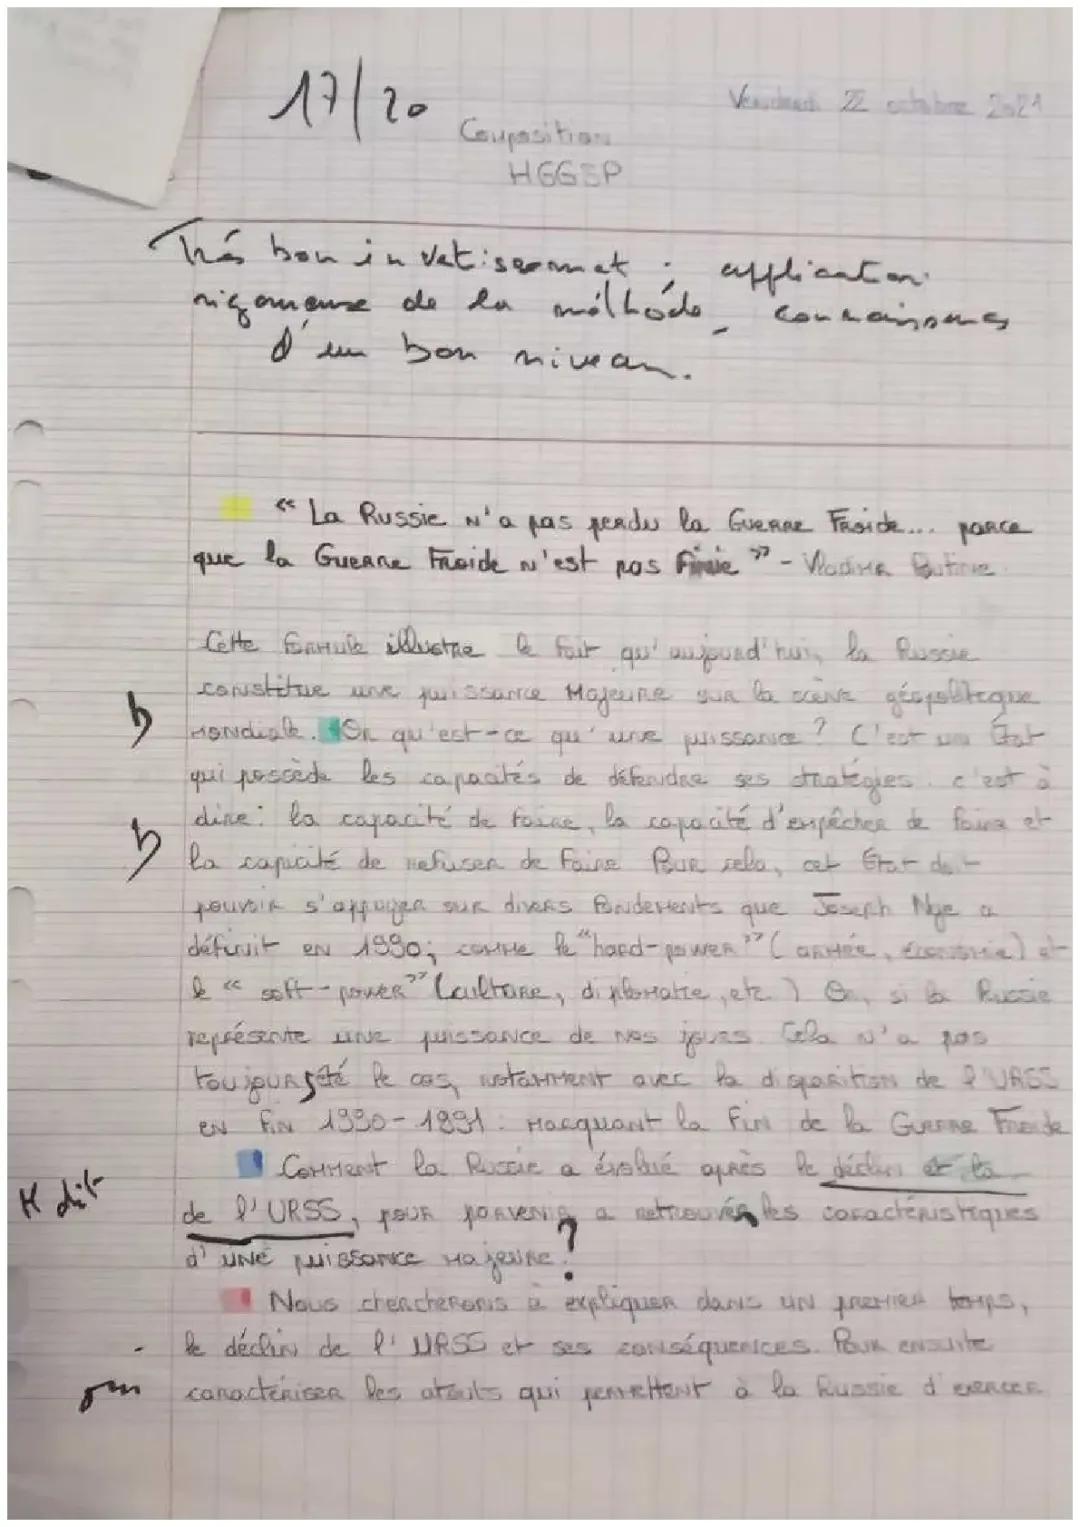 17/20
Vendredi 22 octobre 2021
Composition
HGGSP
Très bon investissement ; application
rigoureuse de la méthode, connaissances
d'un bon niveau.
« La Russie n'a pas perdu la Guerre Froide... parce
que la Guerre Froide n'est pas finie » - Vladimir Poutine.
Cette formule illustre le fait qu'aujourd'hui, la Russie
constitue une puissance majeure sur la scène géopolitique
mondiale. Or qu'est-ce qu'une puissance ? C'est un État
qui possède les capacités de défendre ses stratégies. c'est à
dire : la capacité de faire, la capacité d'empêcher de faire et
la capacité de refuser de faire. Pour cela, cet État doit
pouvoir s'appuyer sur divers fondements que Joseph Nye a
définit en 1990; comme le "hard-power" (armée, économie) et
le « soft-power" (culture, diplomatie, etc.) Or, si la Russie
représente une puissance de nos jours. Cela n'a pas
toujours été le cas, notamment avec la disparition de l'URSS
en fin 1990-1991. Marquant la fin de la Guerre Froide
Comment la Russie a évolué après le déclin et la
M dit
de l'URSS, pour parvenir a retrouver les caractéristiques
d'une puissance majeure ?
Nous chercherons à expliquer dans un premier temps,
le déclin de l'URSS et ses conséquences. Pour ensuite
caractériser les atouts qui permettent à la Russie d'exercer